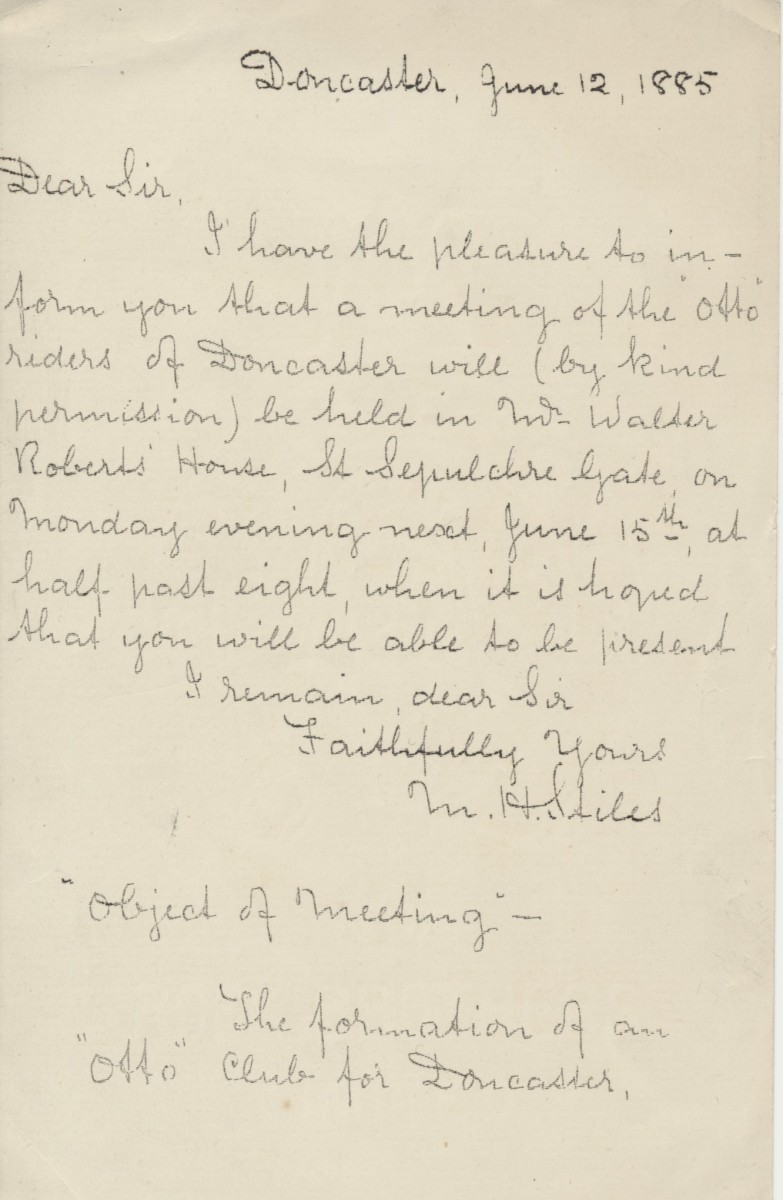 Doncaster, June 12, 1885
Dear Sir,
I have the pleasure to in-
form you that a meeting of the "Otto"
riders of Doncaster will (by kind
permission) be held in Mr Walter
Roberts' House, St Sepulchre Gate, on
Monday evening next, June 15th, at
half past eight, when it is hoped
that you will be able to be present
I remain, dear Sir
Faithfully Yours
M. H. Stiles
"Object of Meeting" —
The formation of an
"Otto" Club for Doncaster,